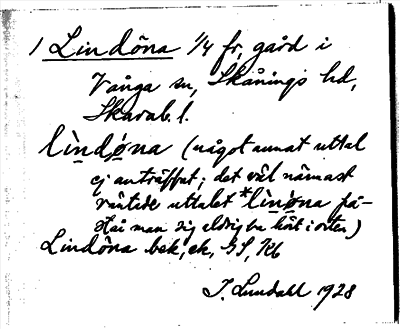 1 Lindöna 1/4 fr, gård i
Vånga sn, Skånings hd,
Skarab. l.
lìndǿna (något annat uttal
ej anträffat; det väl närmast
väntade uttalet *lìnǿna på-
står man sig aldrig ha hört i orten)
Lindöna bek, ek, GS, Kb
I. Lundahl 1928